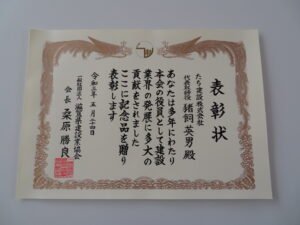 表彰状
たち建設株式会社
代表取締役 猪飼英男 殿
あなたは多年にわたり
本会の役員として建設
業界の発展に多大の
貢献をされました
ここに記念品を贈り
表彰します
令和三年五月二十四日
一般社団法人 滋賀県建設業協会
会長 桑原勝良